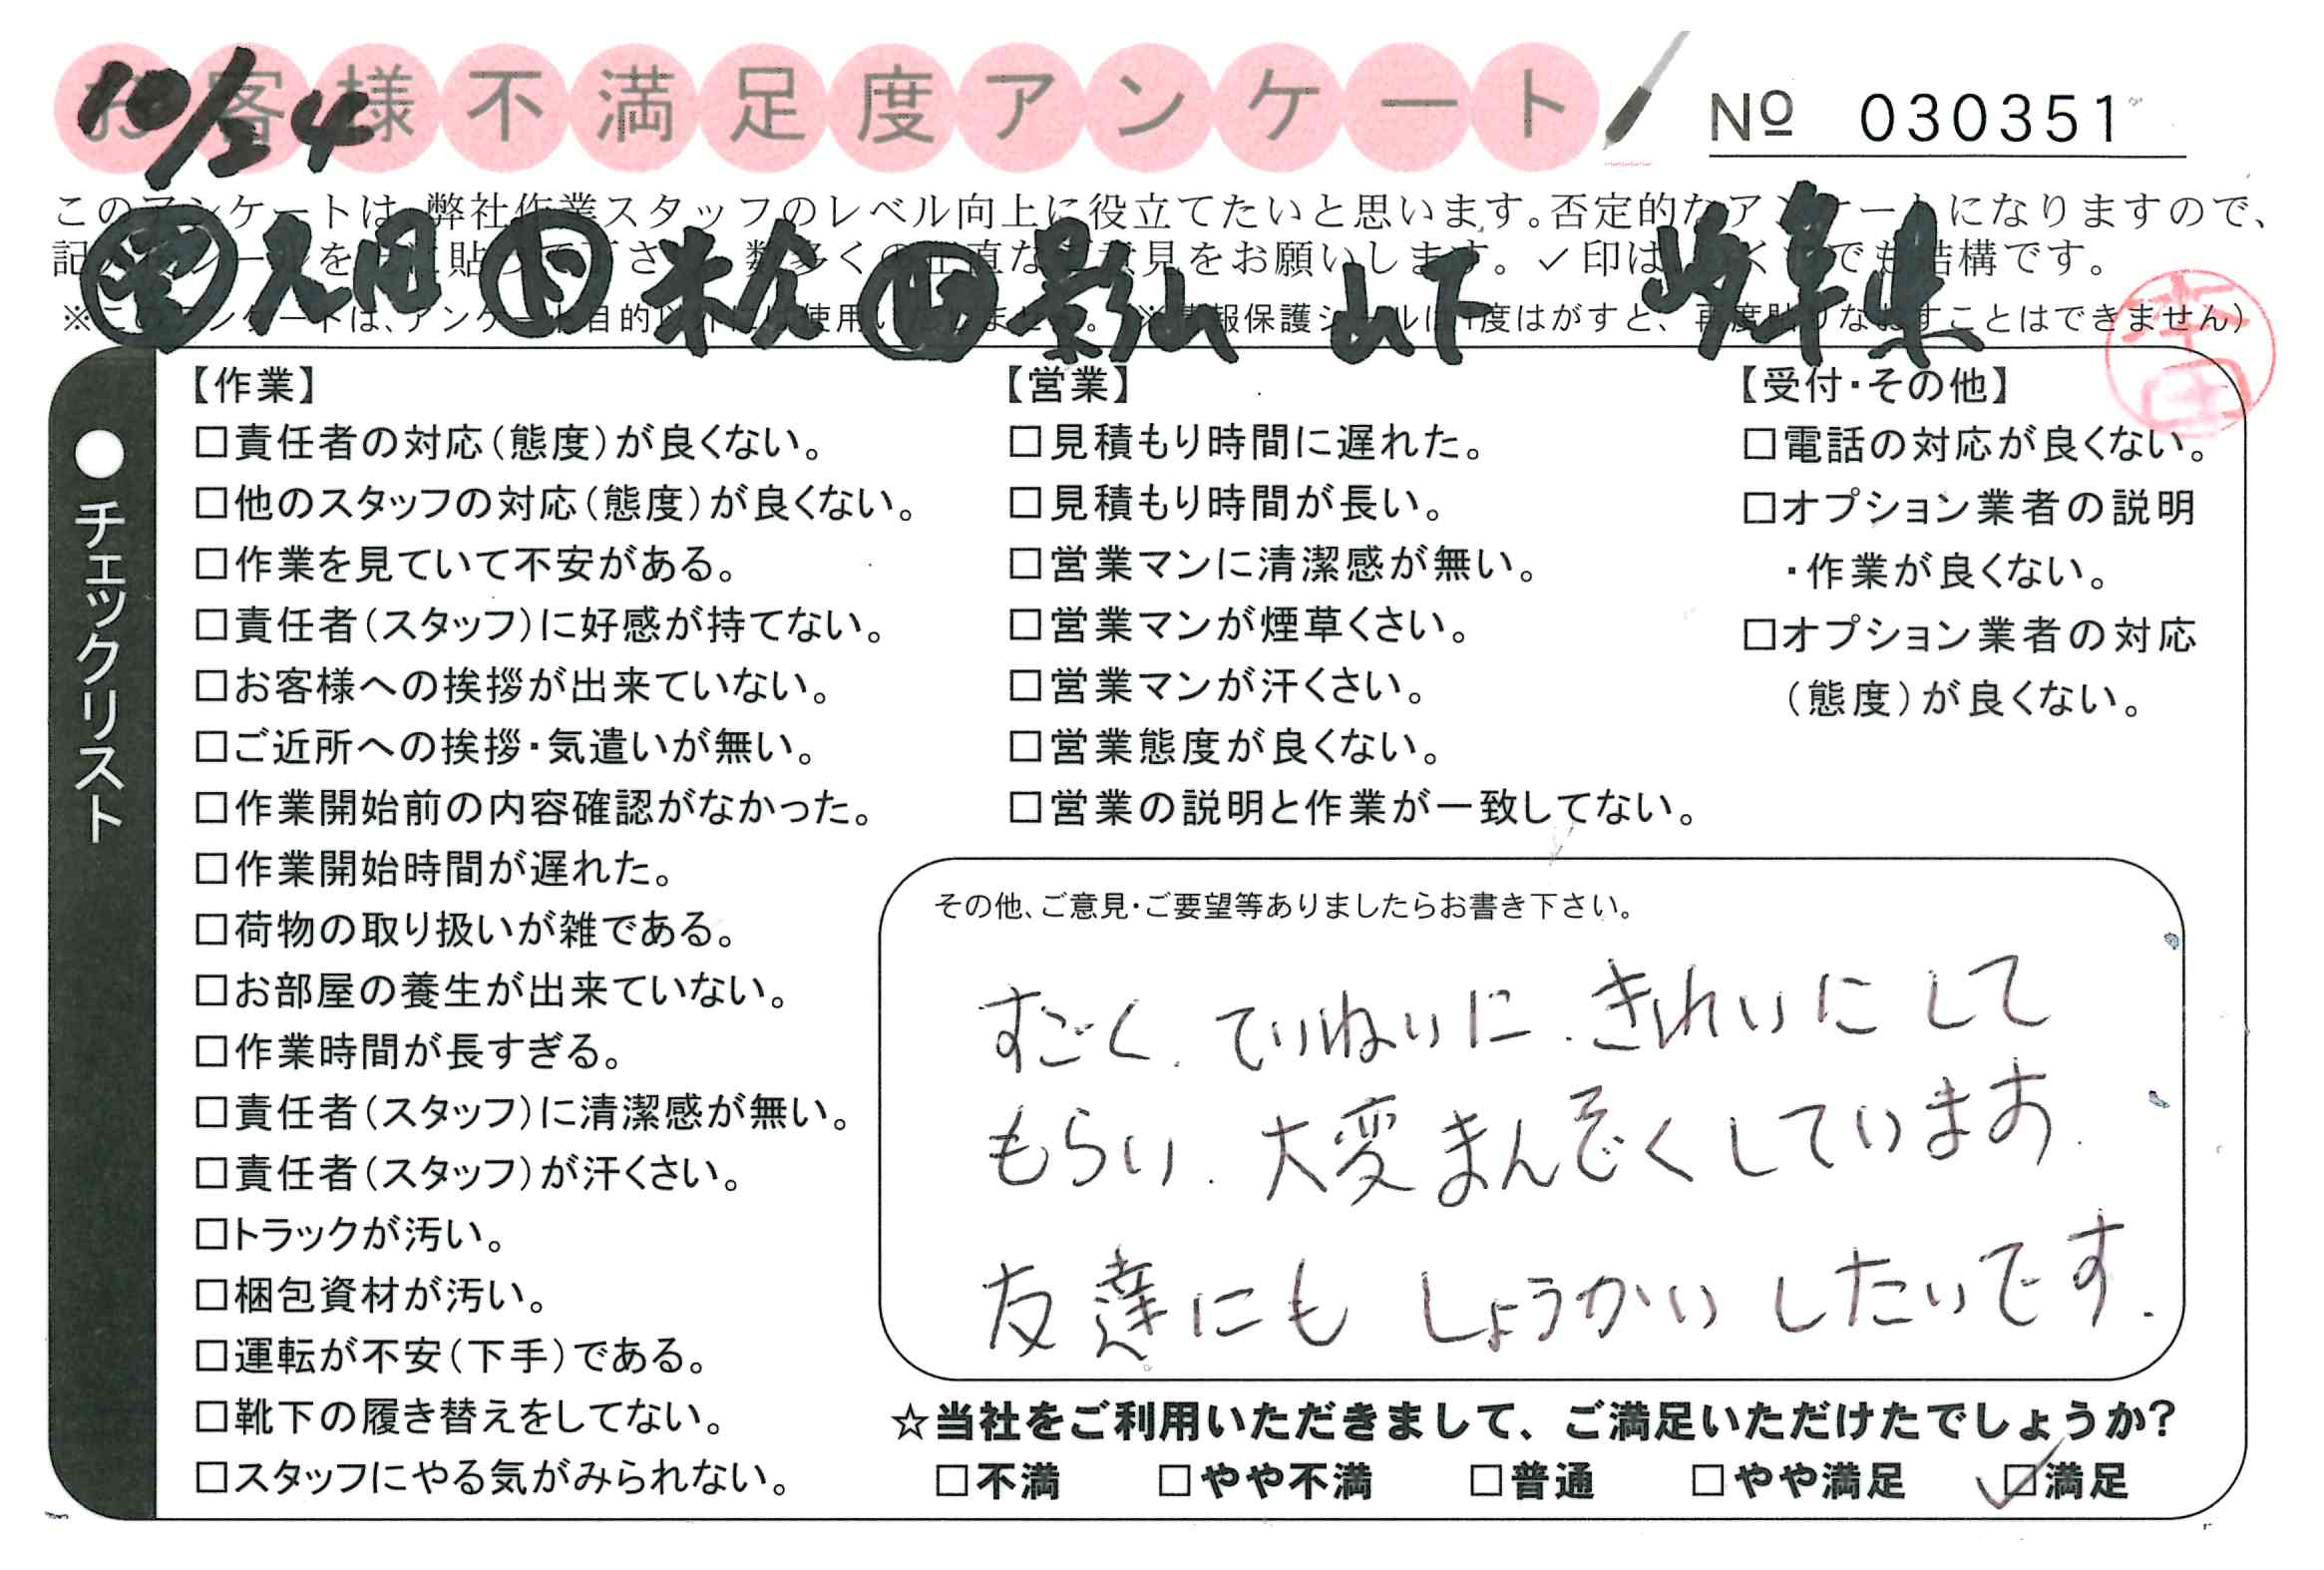 お客様不満足度アンケート
10/24
№ 030351
このアンケートは、弊社作業スタッフのレベル向上に役立てたいと思います。否定的なアンケートになりますので、
数多くの正直なご意見をお願いします。✓印は でも結構です。
久田 米倉 影山 山下 岐阜県
※このアンケートは、アンケート目的以外には使用いたしません。 ※情報保護シールは1度はがすと、再度貼りなおすことはできません)
●チェックリスト
【作業】
□責任者の対応(態度)が良くない。
□他のスタッフの対応(態度)が良くない。
□作業を見ていて不安がある。
□責任者(スタッフ)に好感が持てない。
□お客様への挨拶が出来ていない。
□ご近所への挨拶・気遣いが無い。
□作業開始前の内容確認がなかった。
□作業開始時間が遅れた。
□荷物の取り扱いが雑である。
□お部屋の養生が出来ていない。
□作業時間が長すぎる。
□責任者(スタッフ)に清潔感が無い。
□責任者(スタッフ)が汗くさい。
□トラックが汚い。
□梱包資材が汚い。
□運転が不安(下手)である。
□靴下の履き替えをしてない。
□スタッフにやる気がみられない。
【営業】
□見積もり時間に遅れた。
□見積もり時間が長い。
□営業マンに清潔感が無い。
□営業マンが煙草くさい。
□営業マンが汗くさい。
□営業態度が良くない。
□営業の説明と作業が一致してない。
【受付・その他】
□電話の対応が良くない。
□オプション業者の説明
・作業が良くない。
□オプション業者の対応
(態度)が良くない。
その他、ご意見・ご要望等ありましたらお書き下さい。
すごく、ていねいに、きれいにして
もらい、大変まんぞくしています。
友達にも しょうかい したいです。
☆当社をご利用いただきまして、ご満足いただけたでしょうか?
□不満 □やや不満 □普通 □やや満足 ☑満足